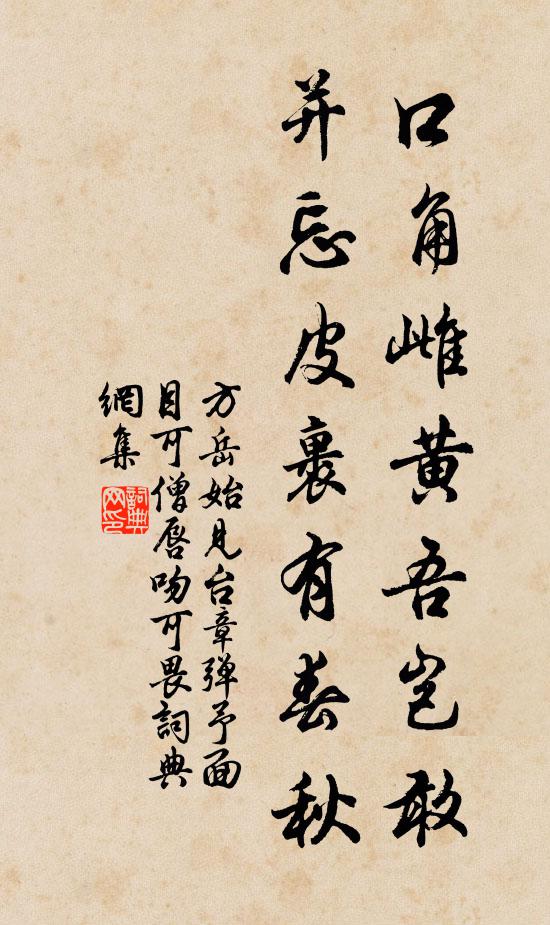 口角雌黄吾岂敢
并忘皮裹有春秋
方岳始见台章弹予面
目可僧唇吻可畏詞典
網集
詞典
网印